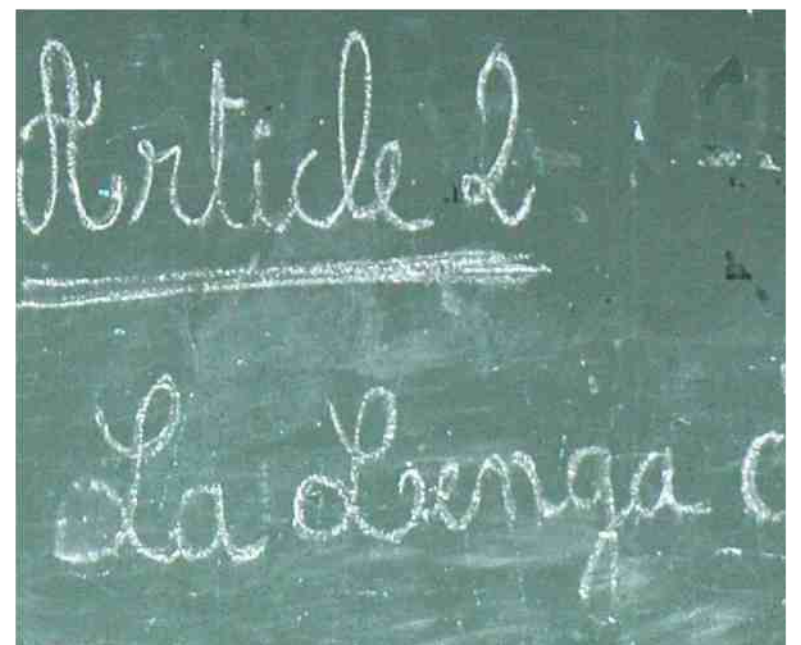 Article 2
La Lenga